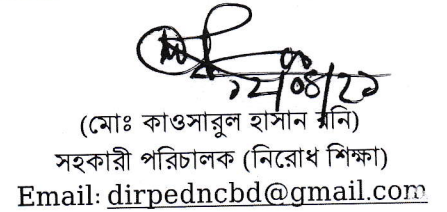 ১২/০৪/২১
(মোঃ কাওসারুল হাসান রনি)
সহকারী পরিচালক (নিরোধ শিক্ষা)
Email: dirpedncbd@gmail.com